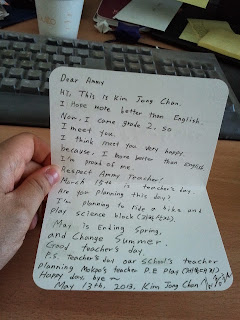 Dear Ammy
Hi, This is Kim Jong Chan.
I Hope more better than English.
Now, I came grade 2, so
I meet you.
I think meet you very happy.
because, I more better than English
I'm proud of me
Respect Ammy Treacher!
March 15th is teacher's day.
Are you planning this day?
I'm planning to ride a bike and
play science block
May is Ending Spring,
and Change Summer.
Good teacher's day.
P.S. Teacher's day our school's teacher
planning Mokpo's teacher P.E Play
Happy day, bye~
May 13th, 2013. Kim Jong Chan